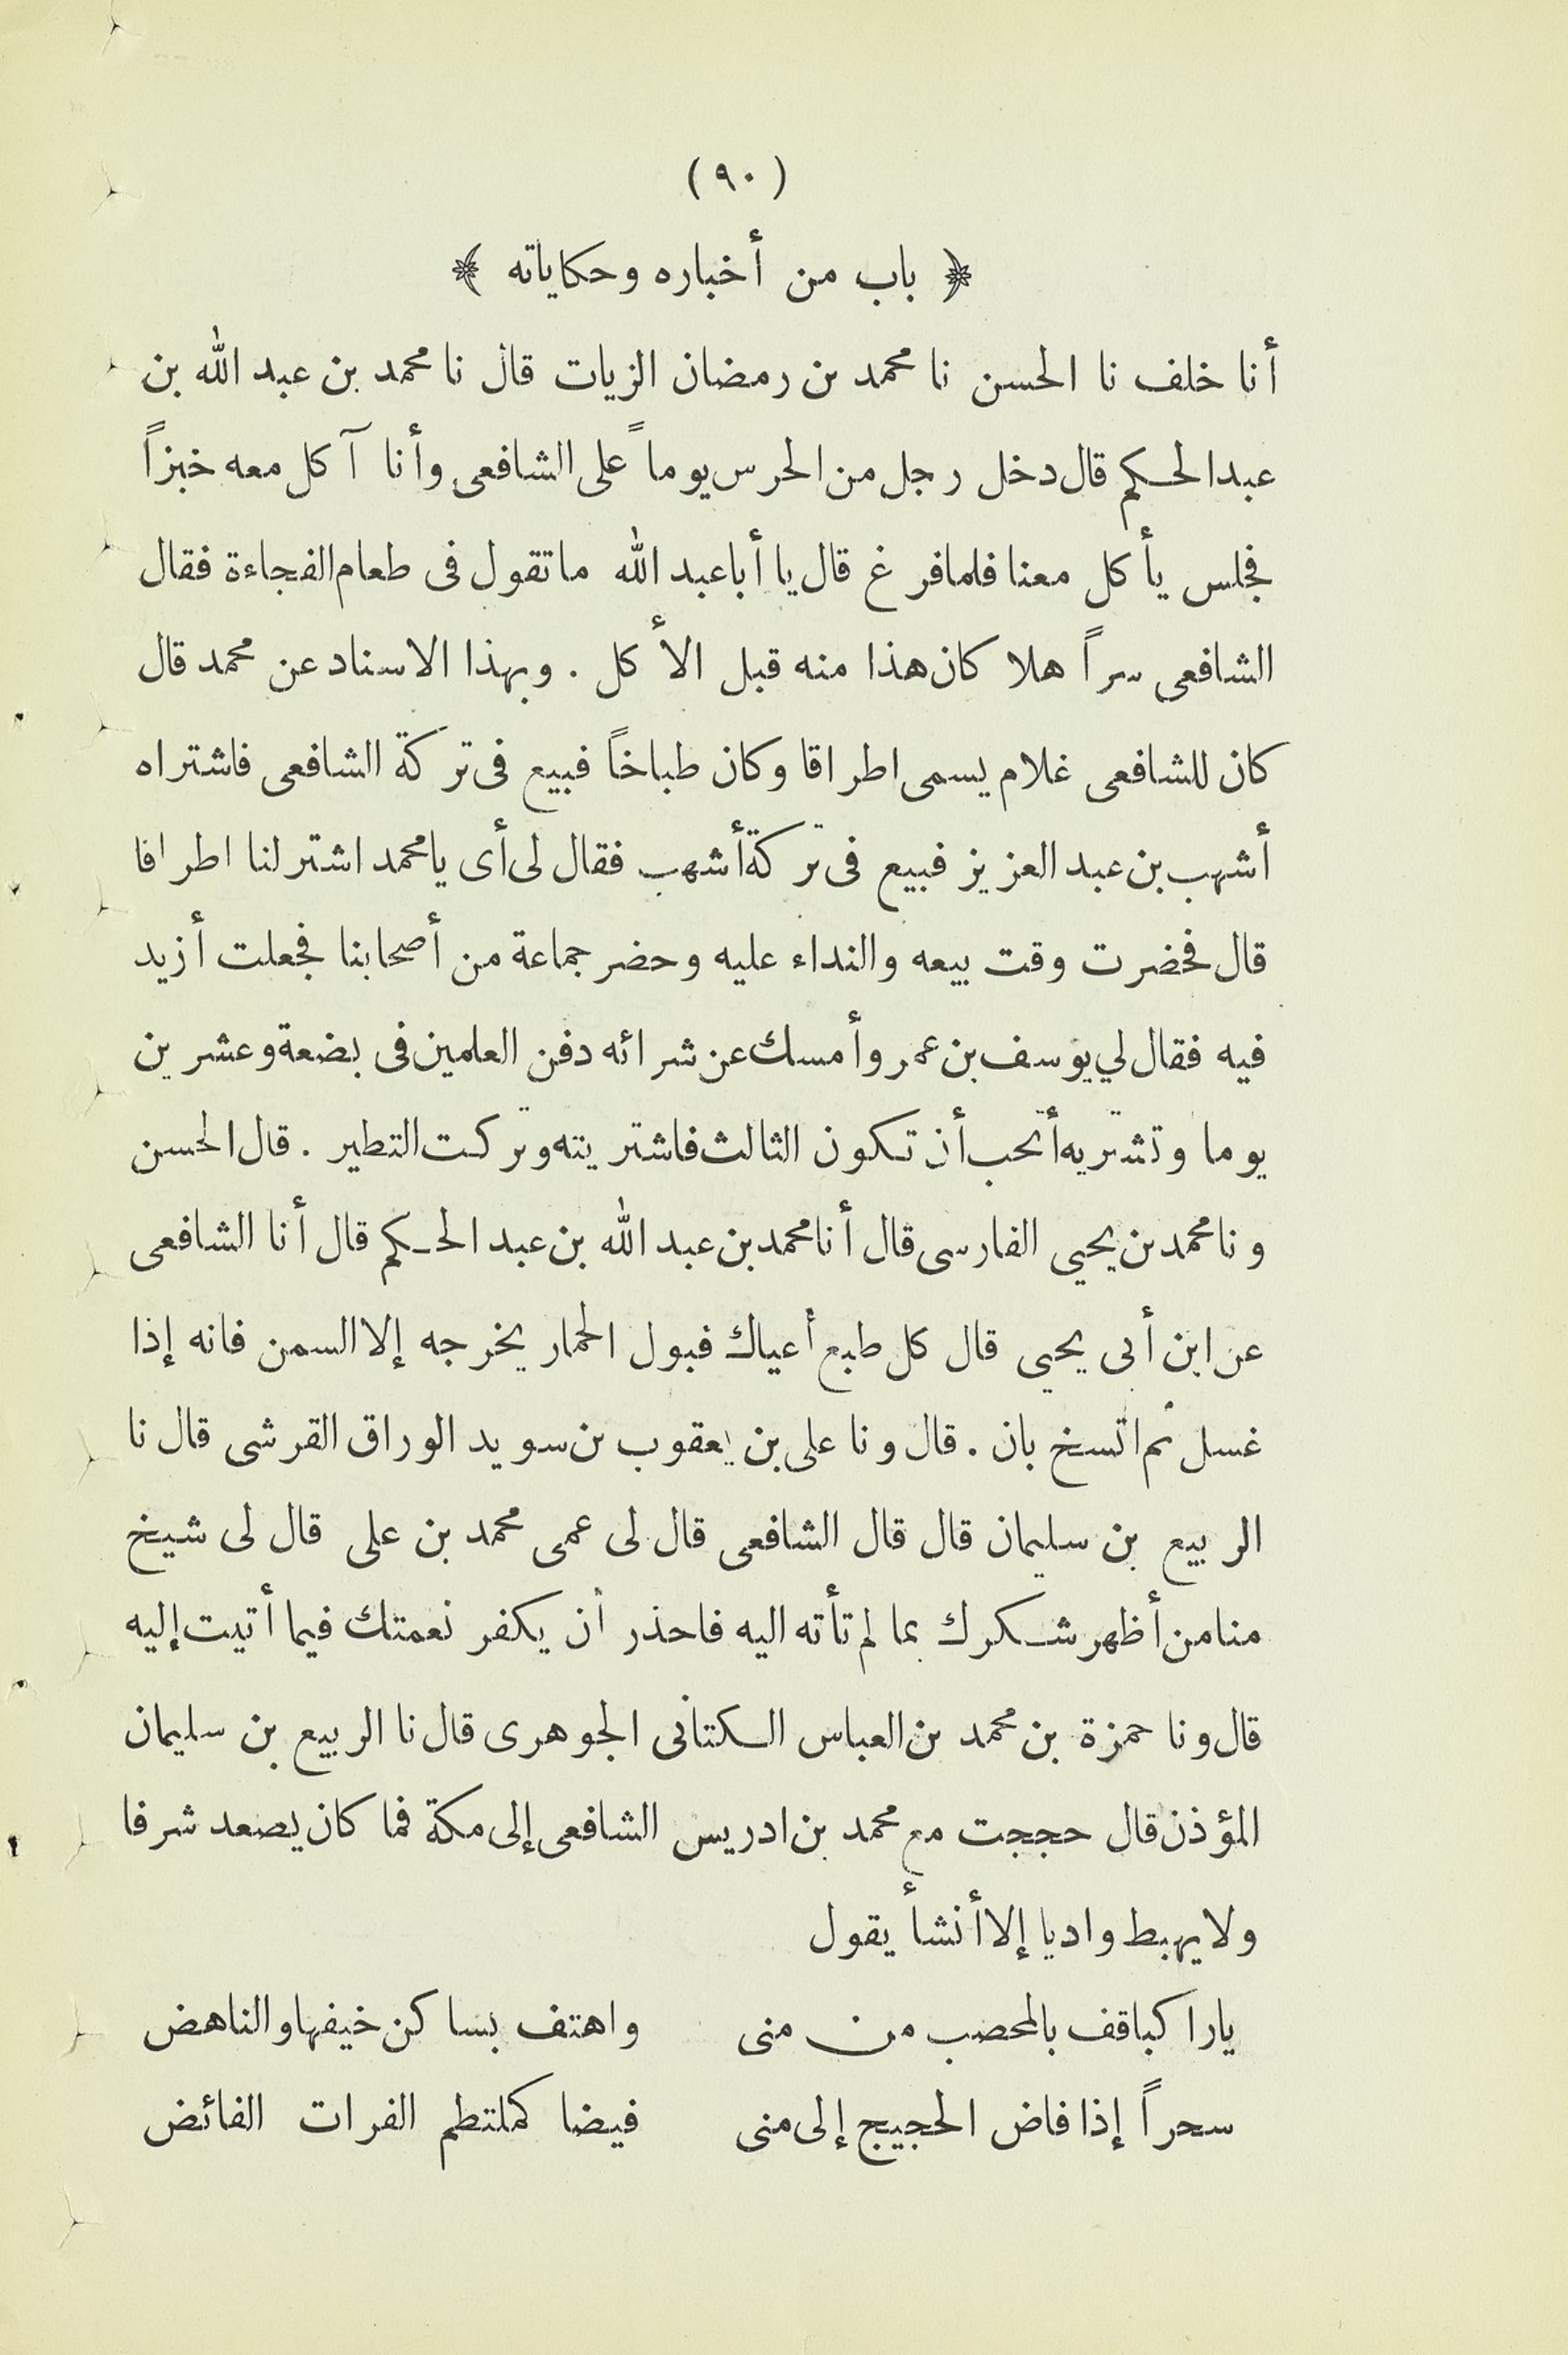 (٩٠)
﴿ باب من أخباره وحكاياته ﴾
أنا خلف نا الحسن نا محمد بن رمضان الزيات قال نا محمد بن عبد الله بن
عبد الحكم قال دخل رجل من الحرس يوماً على الشافعى وأنا آكل معه خبزاً
فجلس يأكل معنا فلما فرغ قال يا أبا عبد الله ما تقول فى طعام الفجاءة فقال
الشافعى سراً هلا كان هذا منه قبل الأكل . وبهذا الاسناد عن محمد قال
كان للشافعى غلام يسمى اطراقا وكان طباخاً فبيع فى تركة الشافعى فاشتراه
أشهب بن عبد العزيز فبيع فى تركة أشهب فقال لى أى يا محمد اشتر لنا اطرافا
قال فحضرت وقت بيعه والنداء عليه وحضر جماعة من أصحابنا فجعلت أزيد
فيه فقال لي يوسف بن عمر وأمسك عن شرائه دفن العلمين فى بضعة وعشرين
يوما وتشتريه أتحب أن تكون الثالث فاشتريته وتركت التطير . قال الحسن
ونا محمد بن يحيى الفارسى قال أنا محمد بن عبد الله بن عبد الحكم قال أنا الشافعى
عن ابن أبى يحيى قال كل طبع أعياك فبول الحمار يخرجه إلا السمن فانه إذا
غسل ثم اتسخ بان . قال ونا على بن يعقوب بن سويد الوراق القرشى قال نا
الربيع بن سليمان قال قال الشافعى قال لى عمى محمد بن على قال لى شيخ
منا من أظهر شكرك بما لم تأته اليه فاحذر أن يكفر نعمتك فيما أتيت إليه
قال ونا حمزة بن محمد بن العباس الكتانى الجوهرى قال نا الربيع بن سليمان
المؤذن قال حججت مع محمد بن ادريس الشافعى إلى مكة فما كان يصعد شرفا
ولا يهبط واديا إلا أنشأ يقول
يا راكبا قف بالمحصب من منى واهتف بساكن خيفها والناهض
سحراً إذا فاض الحجيج إلى منى فيضا كملتطم الفرات الفائض